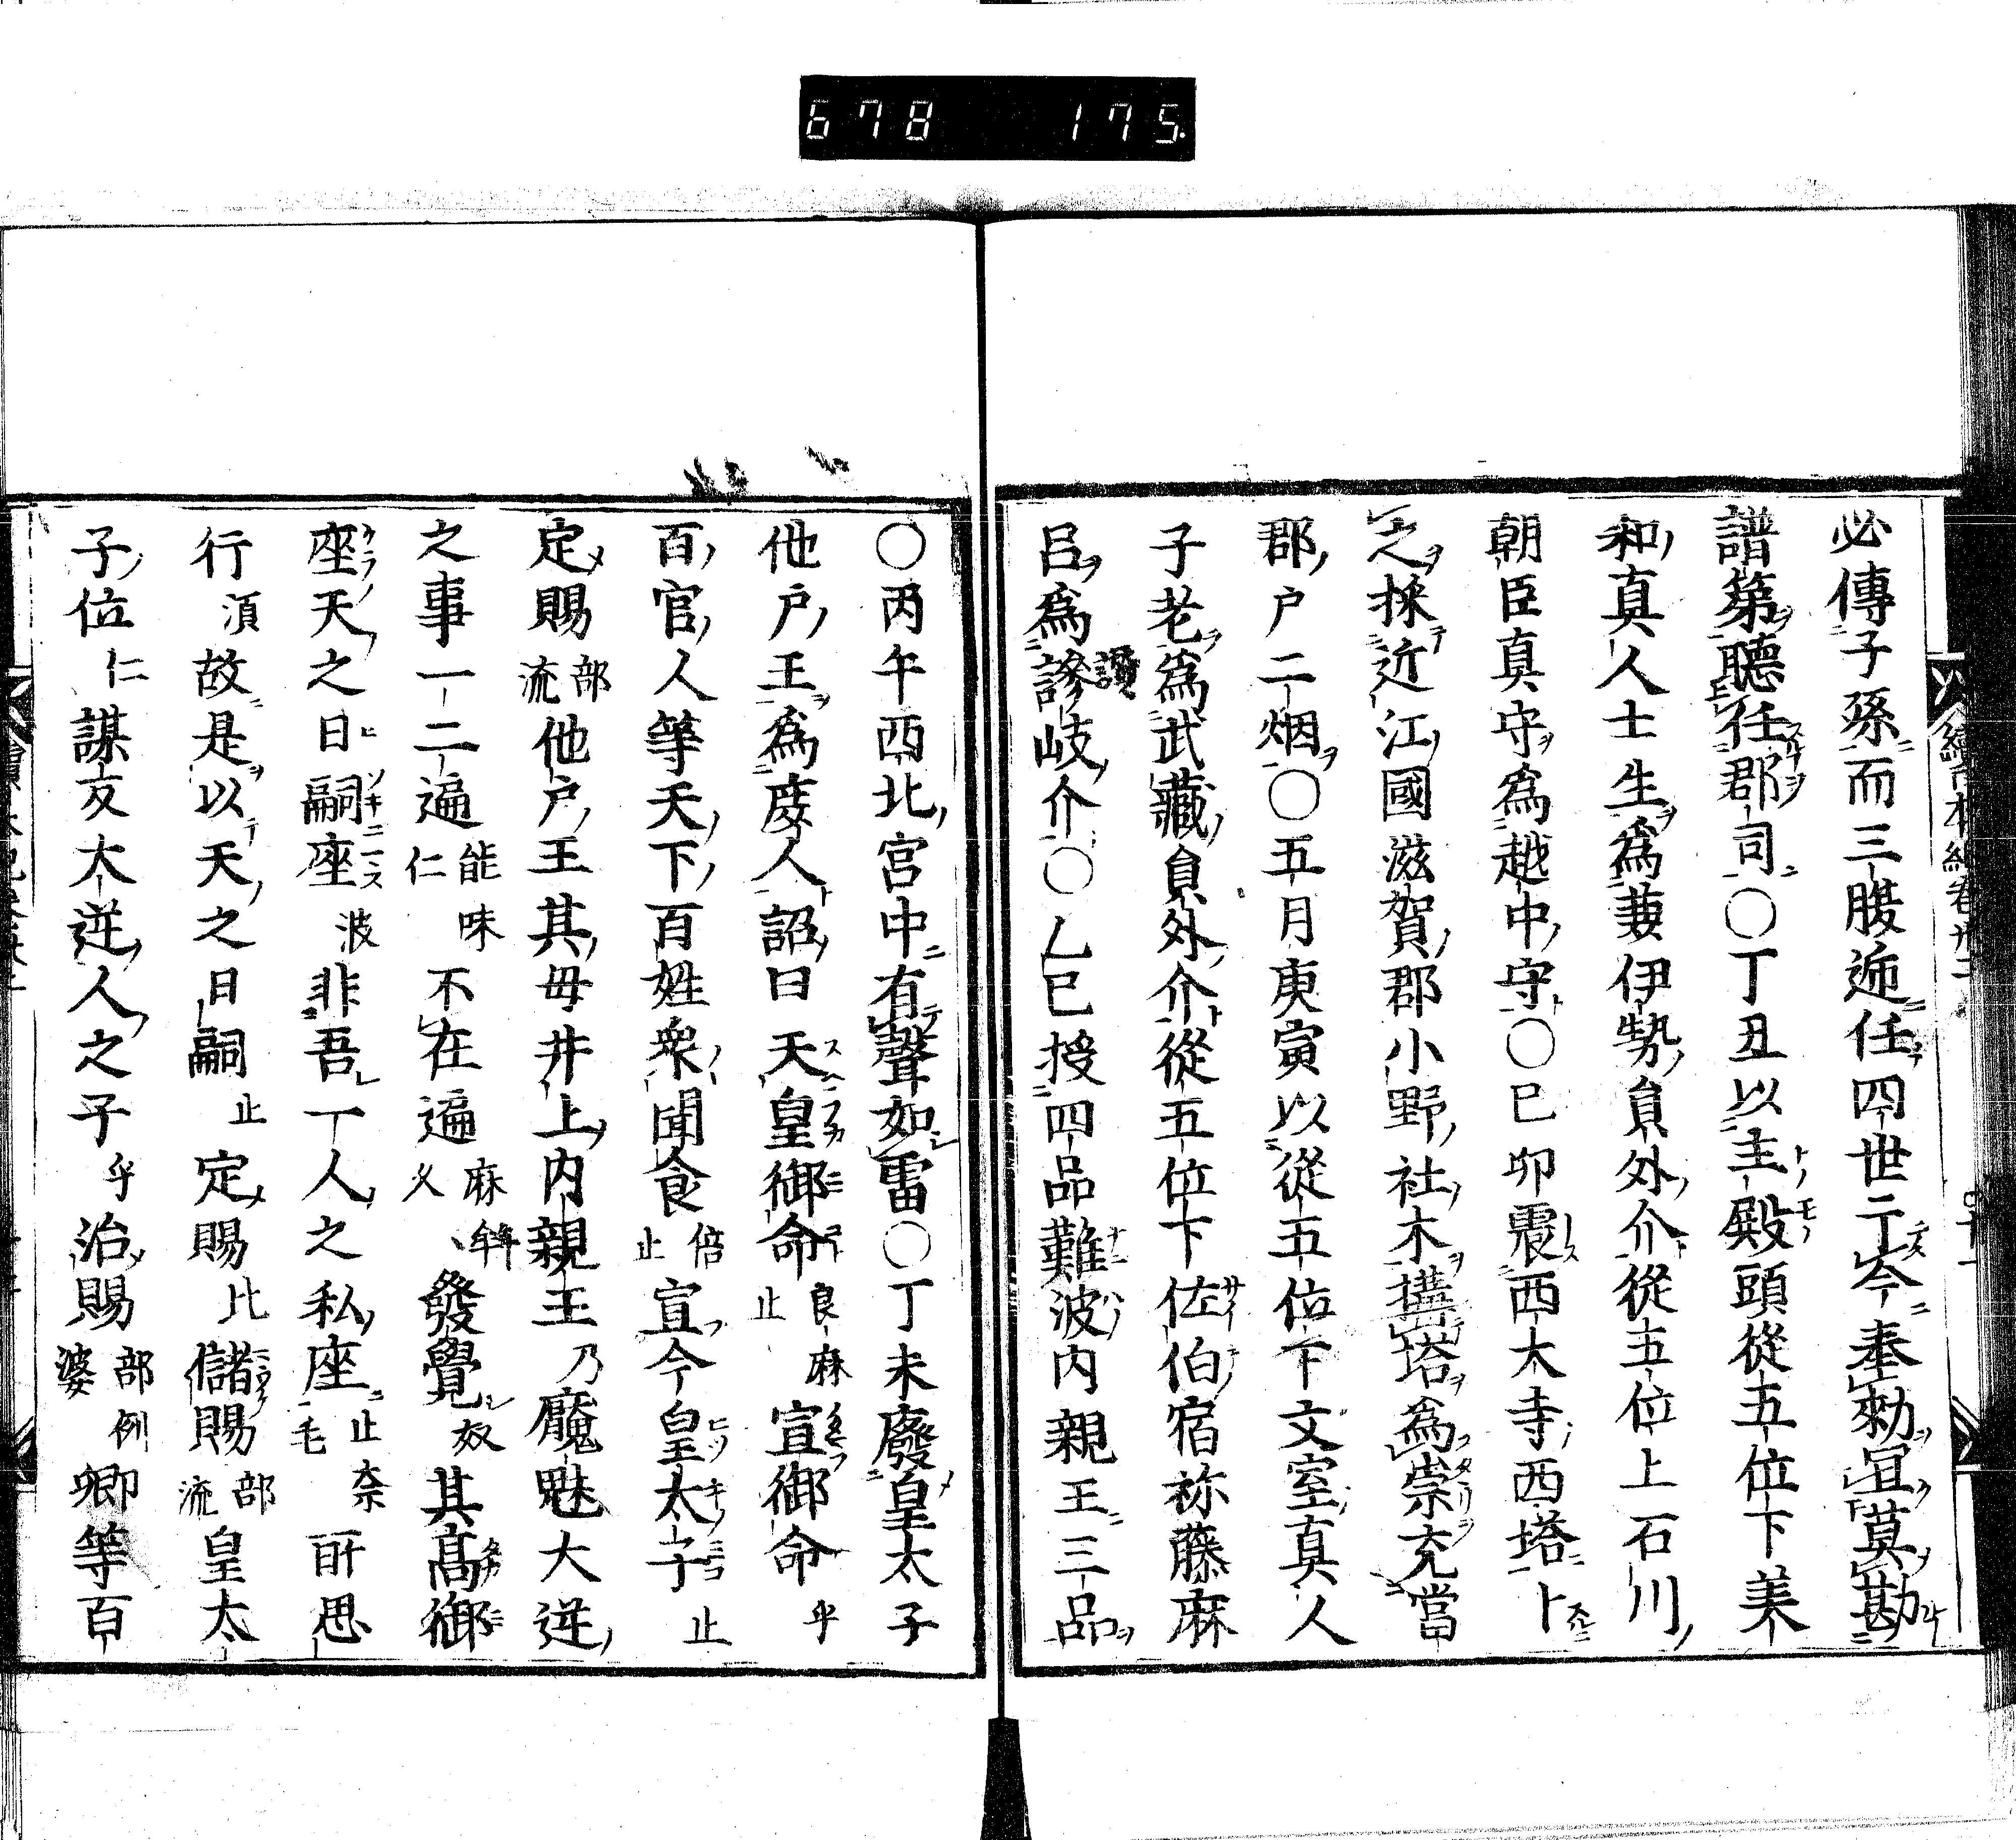 678 175.
必傳子孫而三腹逓任四世于今奉勑冝莫勘
譜第聽任郡司○丁丑以主殿頭從五位下美
和真人士生爲兼伊勢負外介從五位上石川
朝臣真守爲越中守○巳卯震西大寺西塔卜
之採近江國滋賀郡小野社木搆塔爲崇充當
郡户二烟○五月庚寅以從五位下文室真人
子老爲武藏負外介從五位下佐伯宿祢藤麻
呂爲讃岐介○乙巳授四品難波内親王三品
○丙午西北宫中有聲如雷○丁未廢皇太子
他户王爲庶人詔曰天皇御命良麻止宣御命乎
百官人等天下百姓衆聞食倍止宣今皇太子止
定賜部流他户王其母井上内親王乃魘魅大逆
之事一二遍能味仁不在遍麻年久發覺奴其髙御
座天之日嗣座波非吾一人之私座止奈毛所思
行須故是以天之日嗣止定賜比儲賜部流皇太
子位仁謀反大逆人之子乎治賜部例婆卿等百